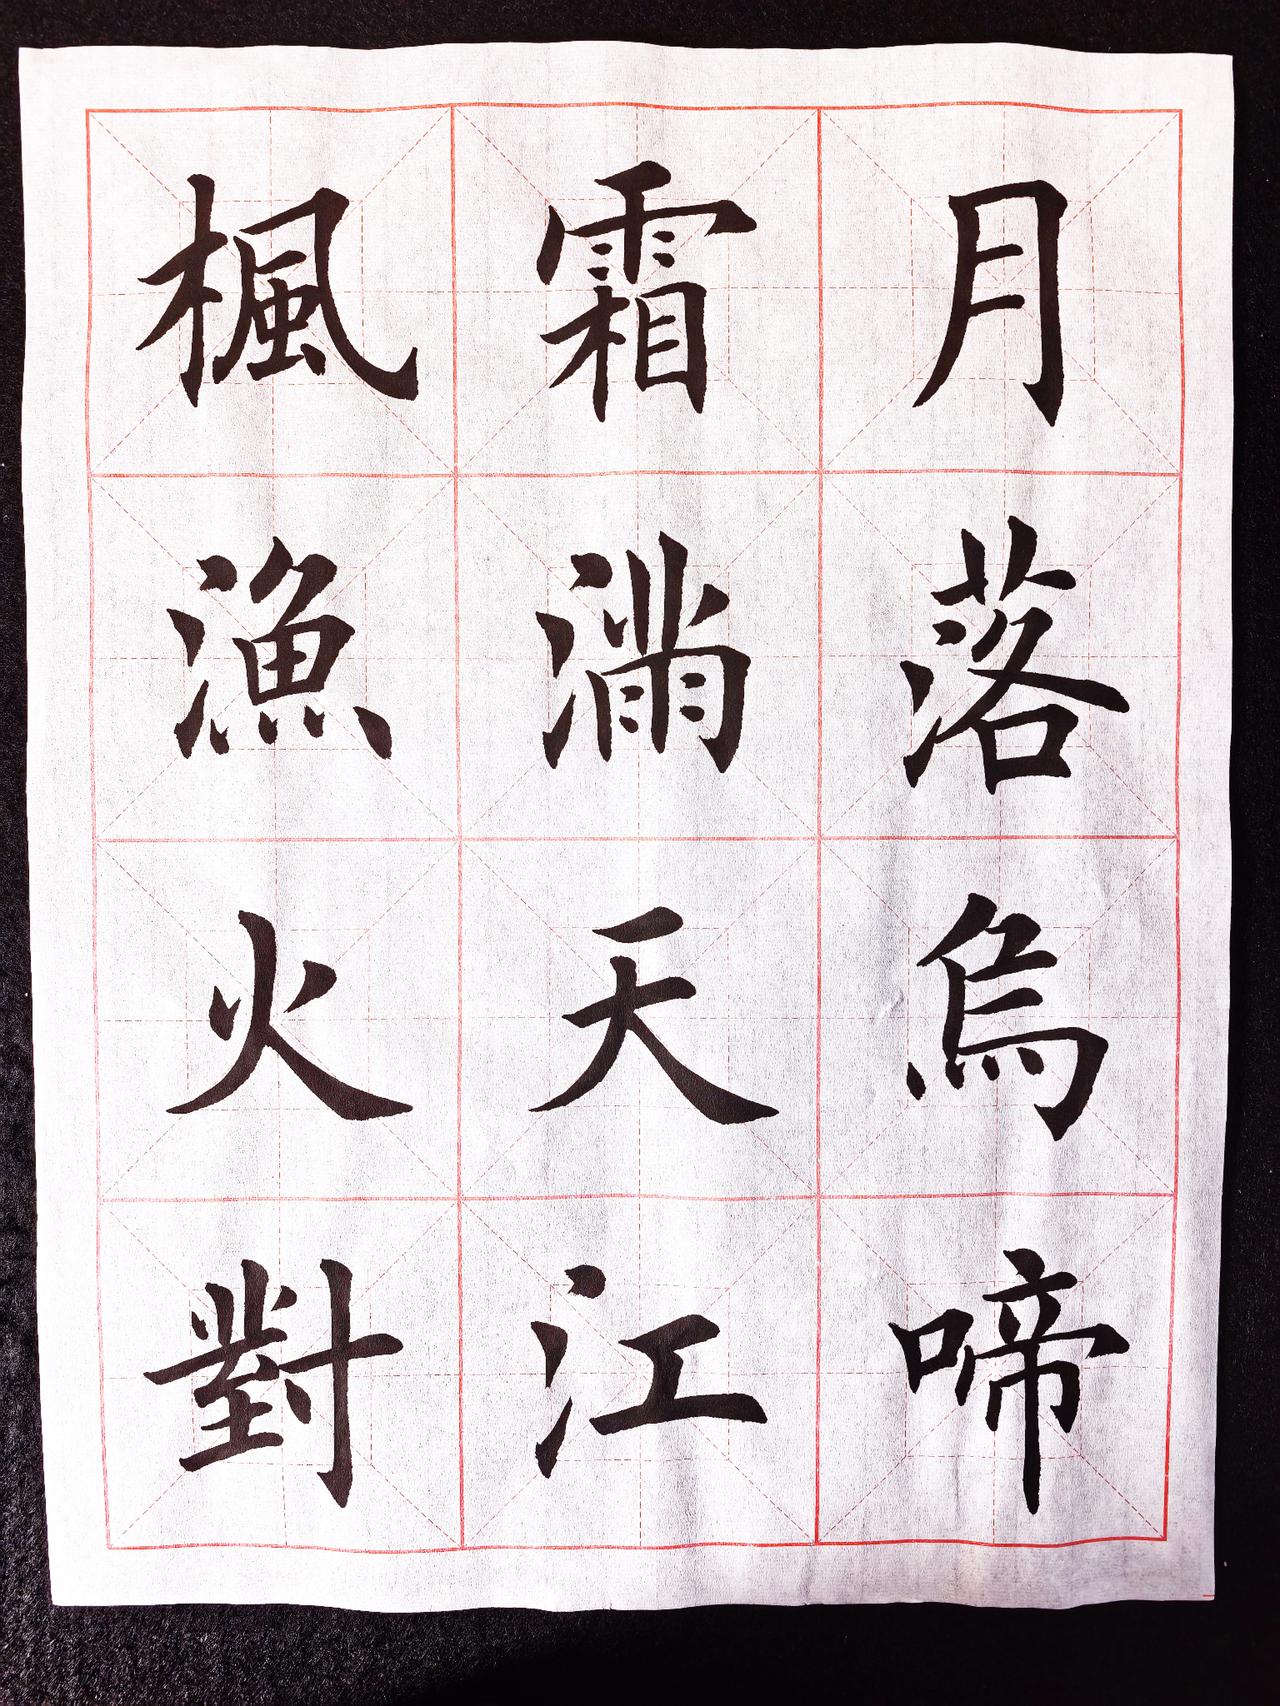 月落烏啼
霜滿天江
楓漁火對